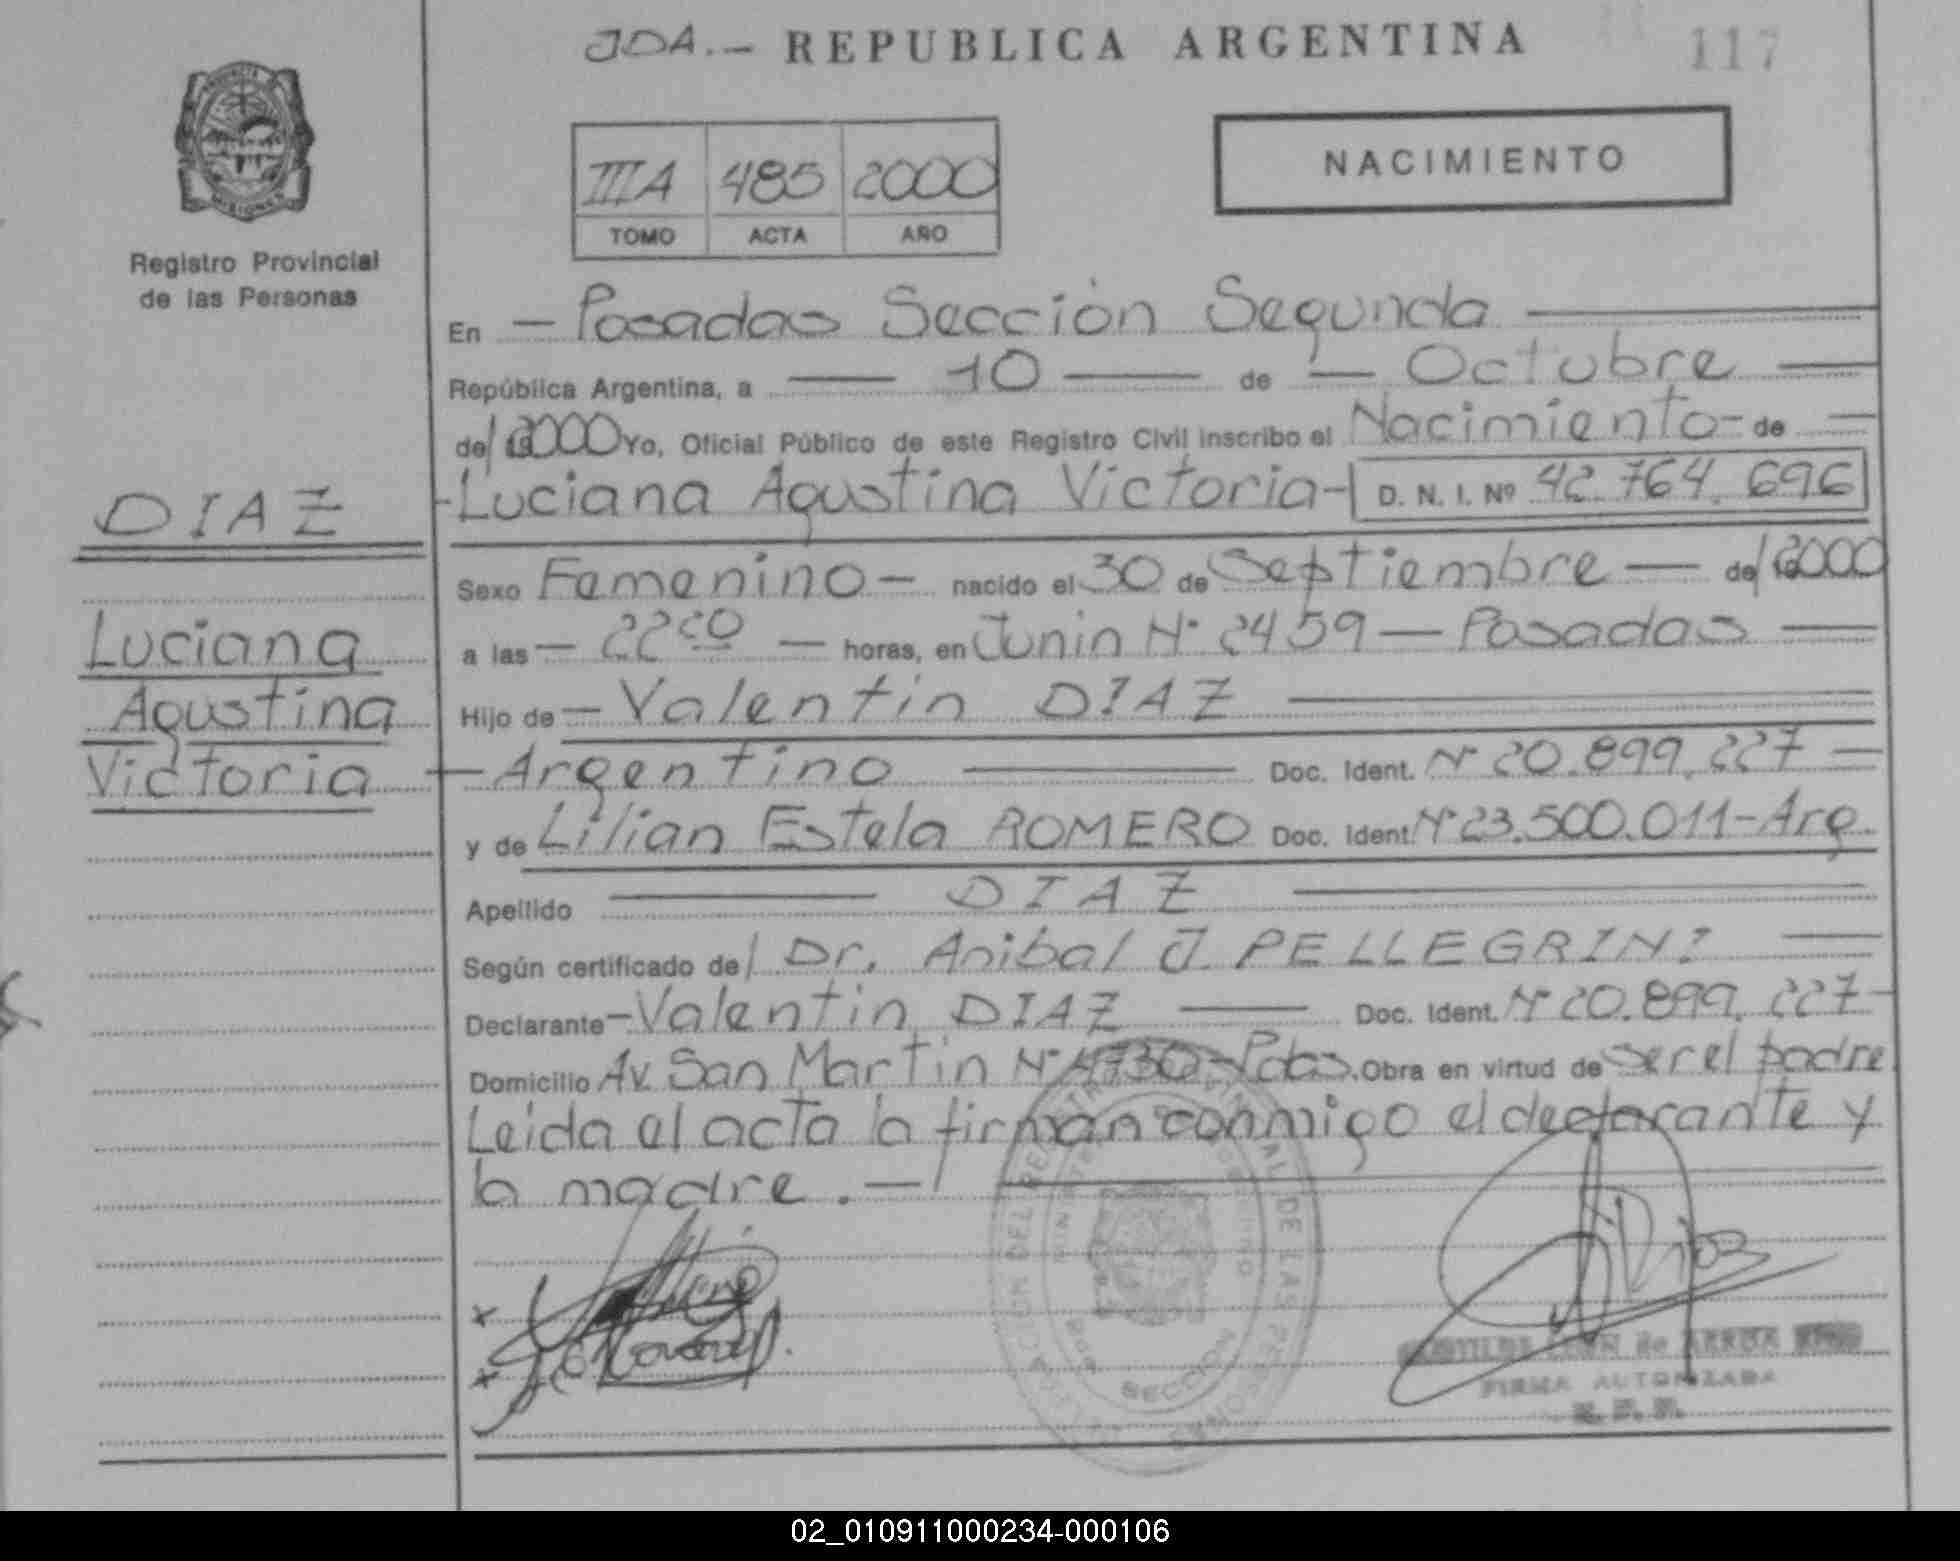 JDA.- REPUBLICA ARGENTINA 117
IIIA 485 2000
TOMO ACTA AÑO
NACIMIENTO
Registro Provincial
de las Personas
En - Posadas Sección Segunda
República Argentina, a 10 de Octubre
de/ 2000 Yo, Oficial Público de este Registro Civil inscribo el Nacimiento - de
- Luciana Agustina Victoria - D. N. I. Nº 42.764.696
DIAZ
Luciana
Agustina
Victoria
Sexo Femenino - nacido el 30 de Septiembre - de/ 2000
a las - 22 20 - horas, en Junin Nº 2459 - Posadas
Hijo de - Valentin DIAZ
- Argentino Doc. Ident. Nº 20.899.227 -
y de Lilian Estela ROMERO Doc. Ident. Nº 23.500.011 - Arg.
Apellido DIAZ
Según certificado de/ Dr. Anibal J. PELLEGRINI
Declarante - Valentin DIAZ Doc. Ident. Nº 20.899.227 -
Domicilio Av. San Martin Nº 4730 - Pdas. Obra en virtud de ser el padre
Leida el acta la firman conmigo el declarante y
la madre. -
SECCION
FIRMA AUTORIZADA
02_010911000234-000106